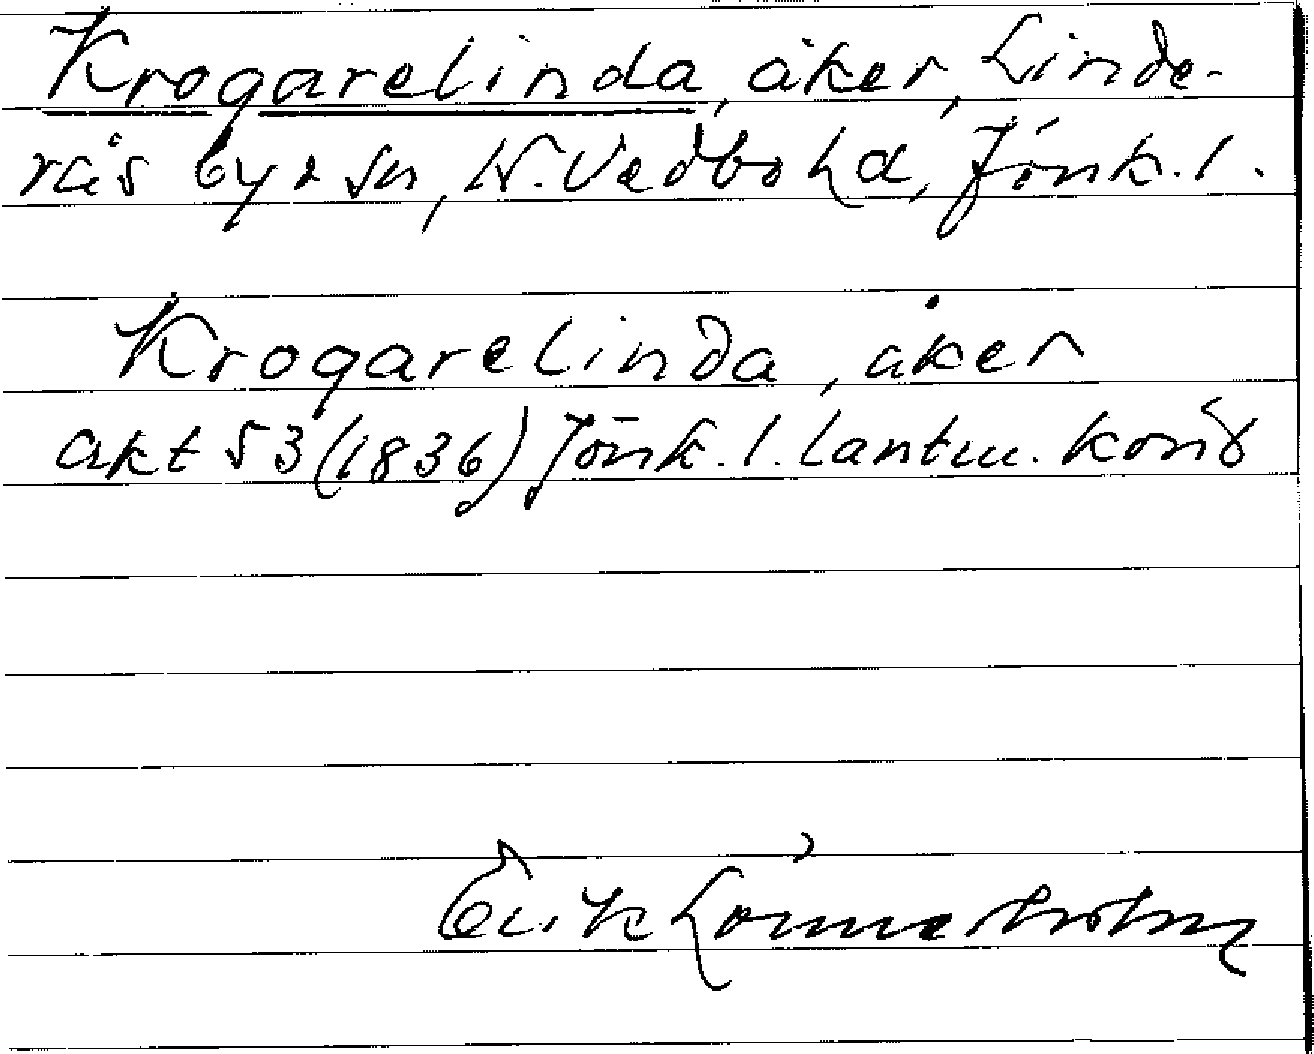 Krogarelinda, åker, Linde-
rås by o sn, N. Vedbo hd, Jönk. l.
Krogarelinda, åker
akt 53 (1836) Jönk. l. lantm. kont
Erik Lönnerholm